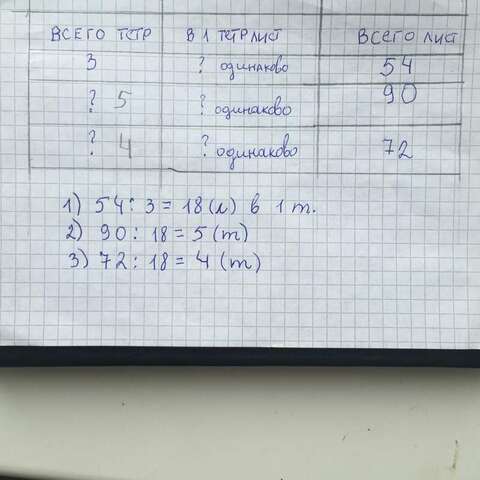 ВСЕГО ТЕТР В 1 ТЕТР ЛИСТ ВСЕГО ЛИСТ
3 ? одинаково 54
? 5 ? одинаково 90
? 4 ? одинаково 72
1) 54 : 3 = 18 (л) в 1 т.
2) 90 : 18 = 5 (т)
3) 72 : 18 = 4 (т)